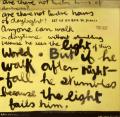 are there not twelve hours of
are there not twelve hours
of daylight?
Anyone can walk
in daytime without stumbling
because he sees the light of this
But if he
walk after night-
fall he stumbles
because the light
fails him.